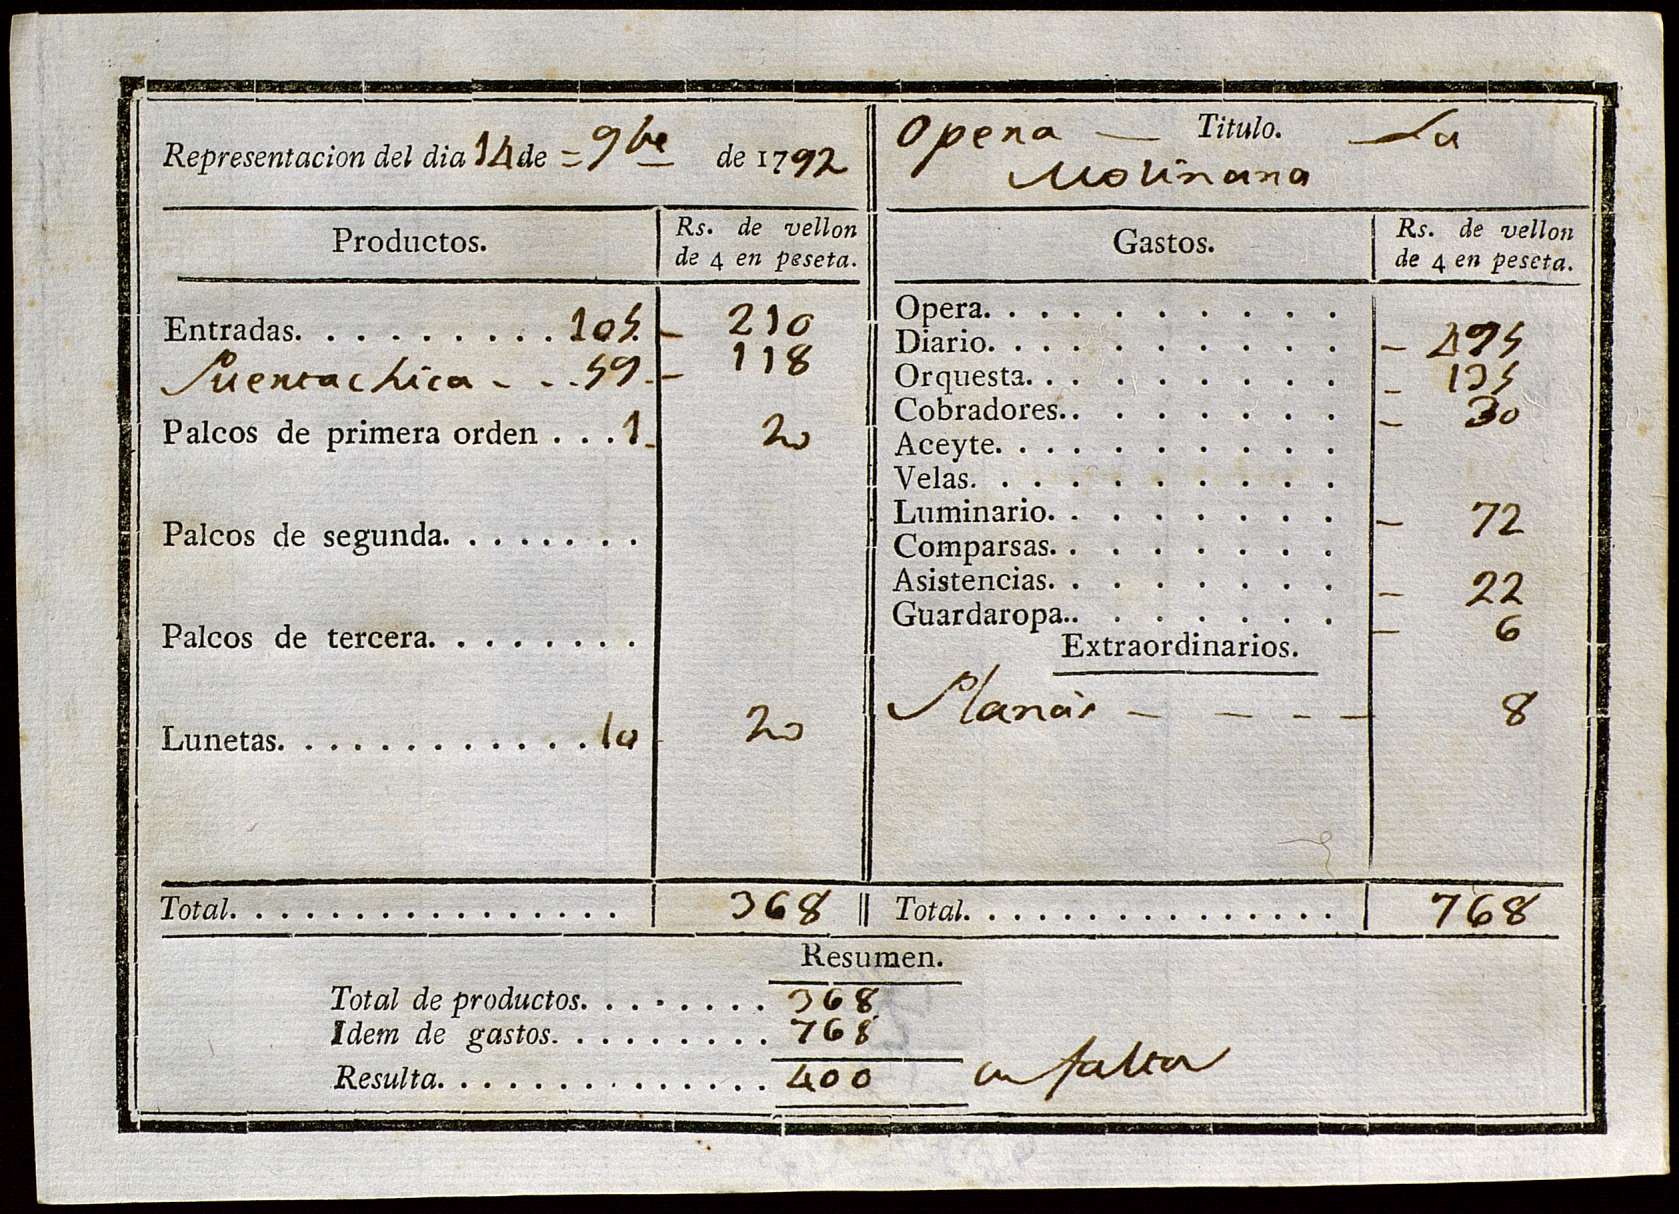 Representacion del dia 14 de = 9bre de 1792
Opera — Titulo. — La
Molinara
Productos. Rs. de vellon
de 4 en peseta.
Entradas. . . . . . . . . . 105. — 210
Puertachica - - - 59. — 118
Palcos de primera orden . . . 1 20
Palcos de segunda. . . . . . . .
Palcos de tercera. . . . . . . .
Lunetas. . . . . . . . . . . . . 10 20
Total. . . . . . . . . . . . . . . . . 368
Gastos. Rs. de vellon
de 4 en peseta.
Opera. . . . . . . . . .
Diario. . . . . . . . . . — 495
Orquesta. . . . . . . . . — 135
Cobradores.. . . . . . . — 30
Aceyte. . . . . . . . . .
Velas. . . . . . . . . . .
Luminario. . . . . . . . — 72
Comparsas. . . . . . . .
Asistencias. . . . . . . . — 22
Guardaropa.. . . . . . . — 6
Extraordinarios.
Planas — — - - — 8
Total. . . . . . . . . . . . . . . . 768
Resumen.
Total de productos. . . . . . . . 368
Idem de gastos. . . . . . . . . 768
Resulta. . . . . . . . . . . . . . 400 en falta